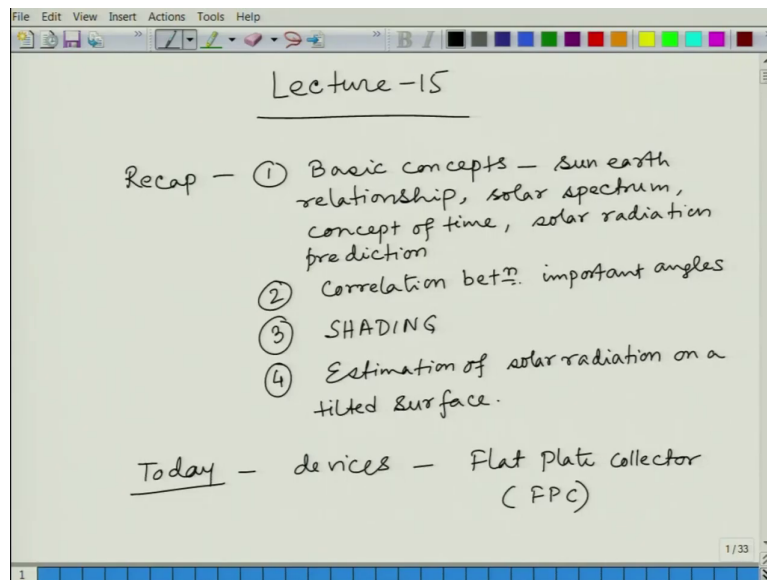 File Edit View Insert Actions Tools Help
B I
Lecture-15
Recap - ① Basic concepts - sun earth
relationship, solar spectrum,
concept of time, solar radiation
prediction
② Correlation betn. important angles
③ SHADING
④ Estimation of solar radiation on a
tilted surface.
Today - devices - Flat plate collector
(FPC)
1/33
1